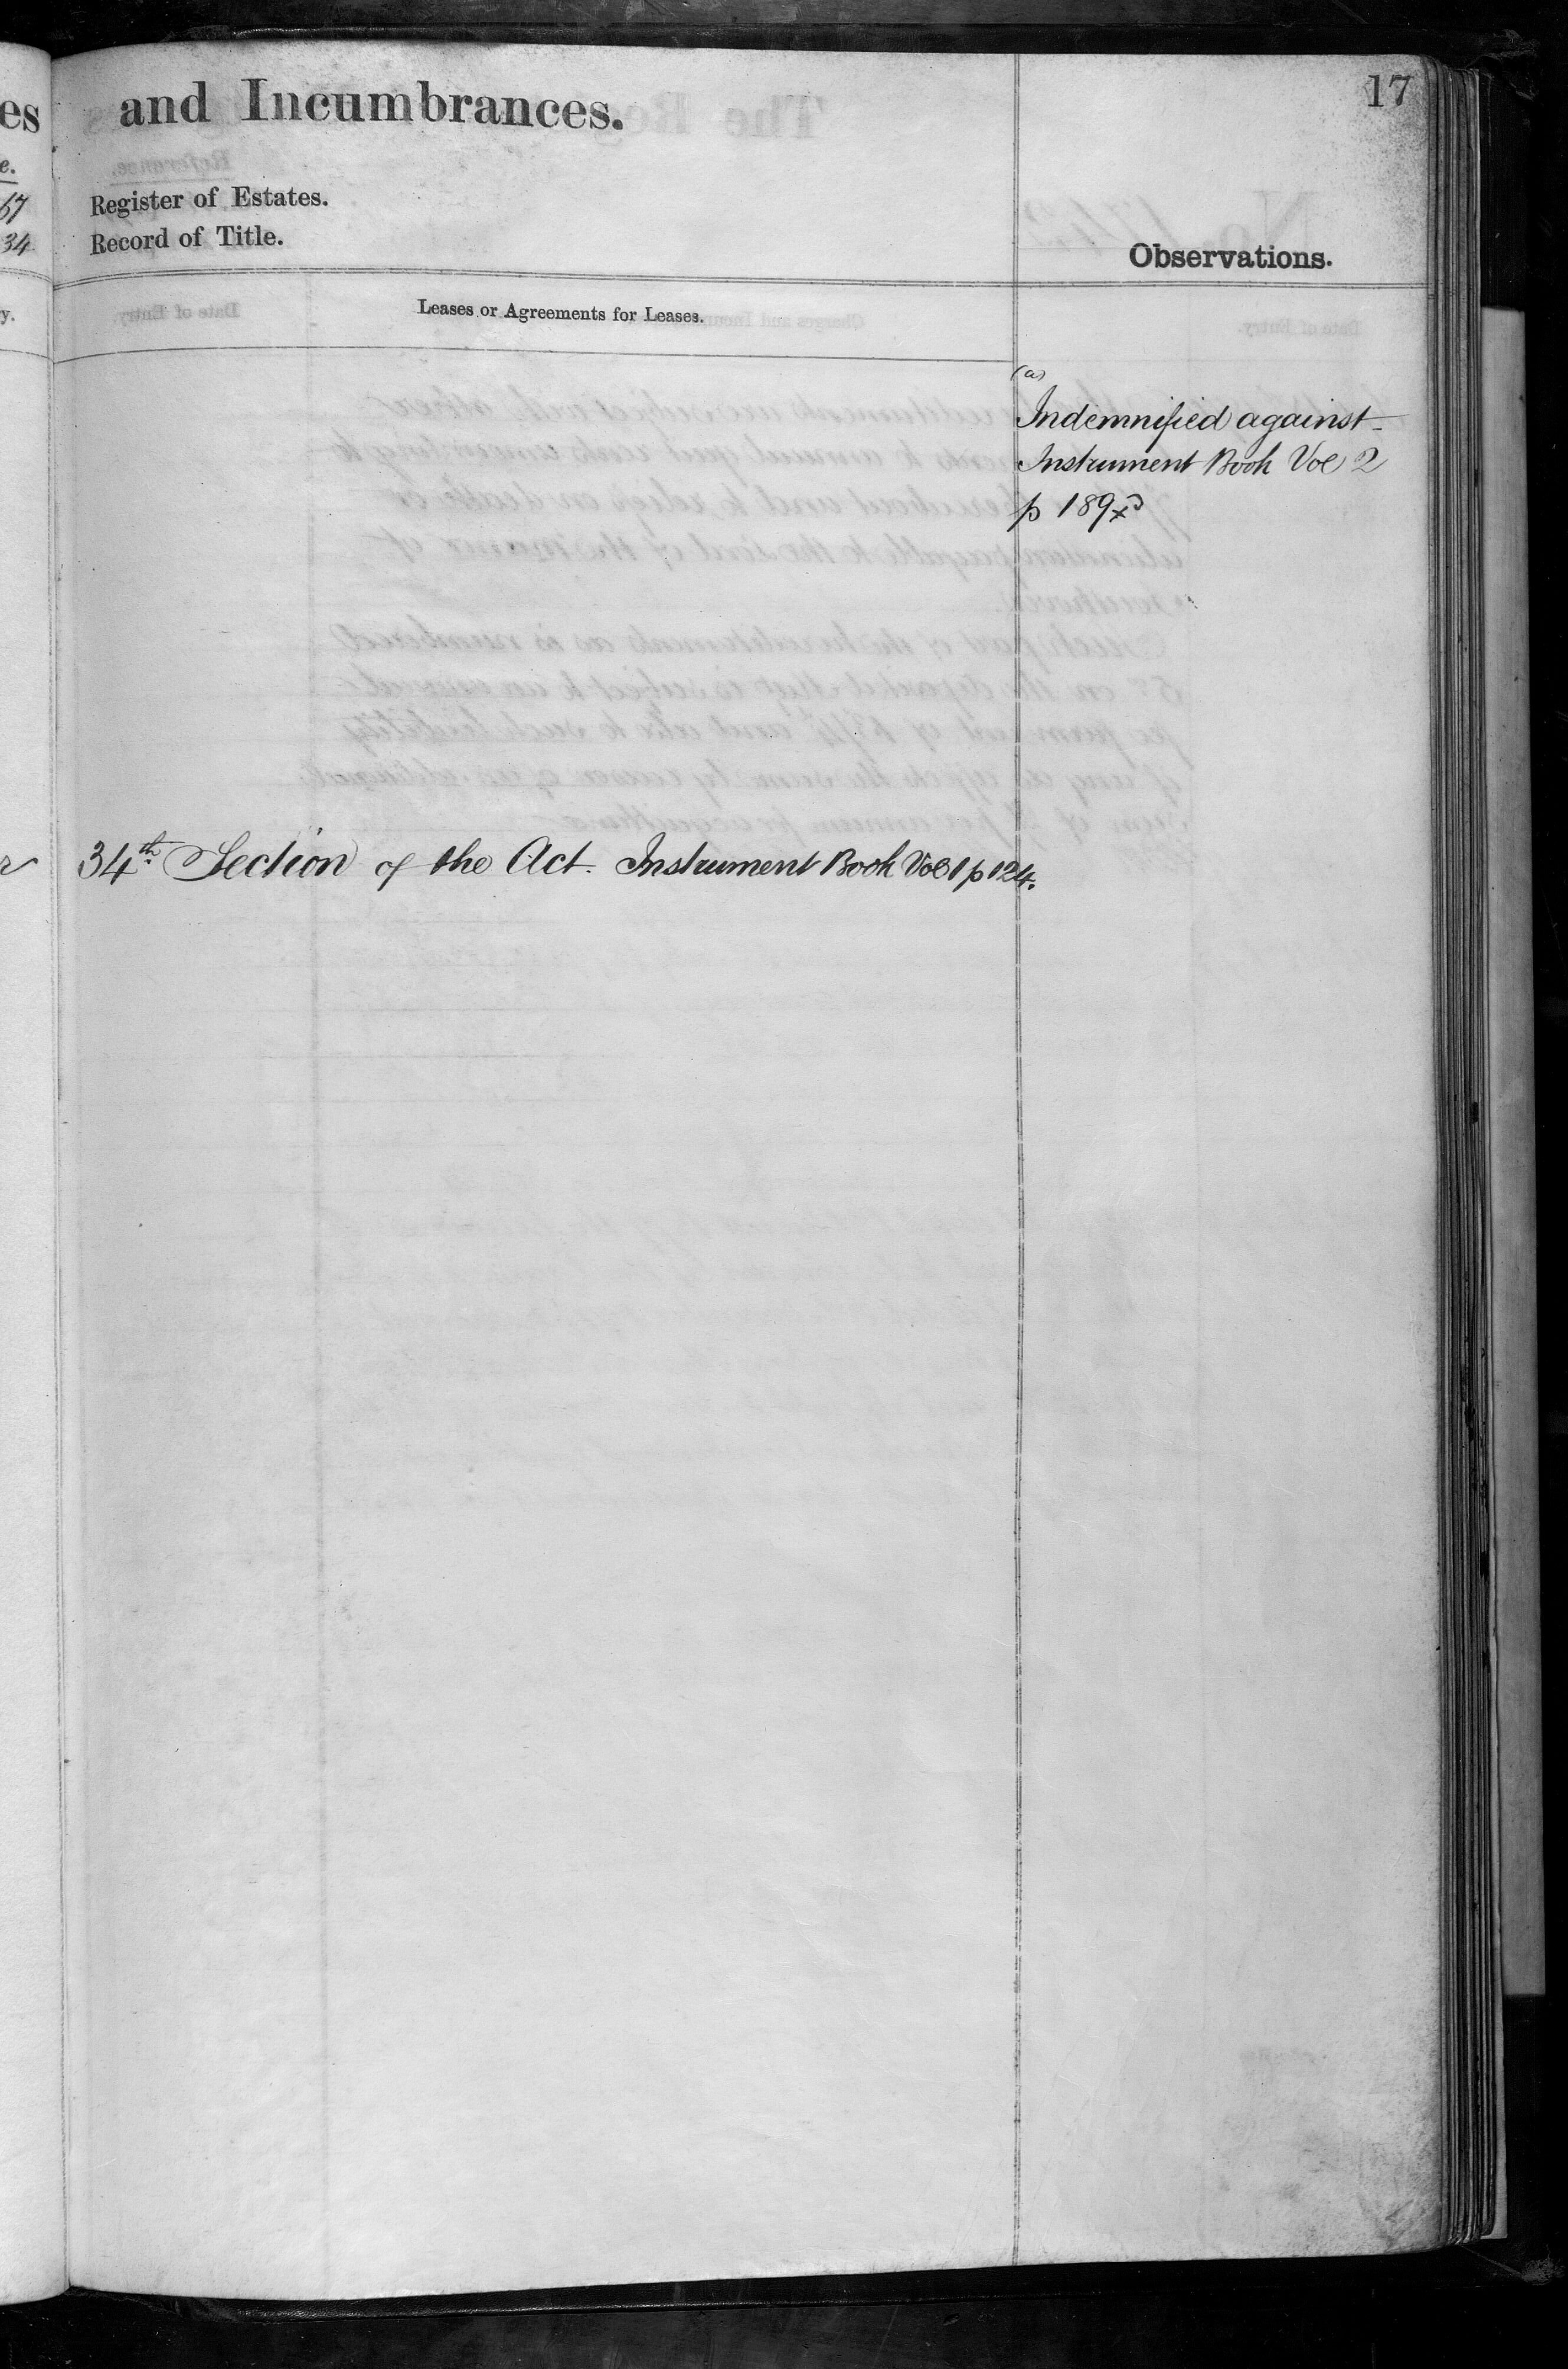 17
es and Incumbrances.
e.
67 Register of Estates.
34 Record of Title.
Observations.
y. Leases or Agreements for Leases.
(a)
Indemnified against
Instrument Book Vol 2
p 189
34th Section of the Act. Instrument Book Vol 1 p 124.